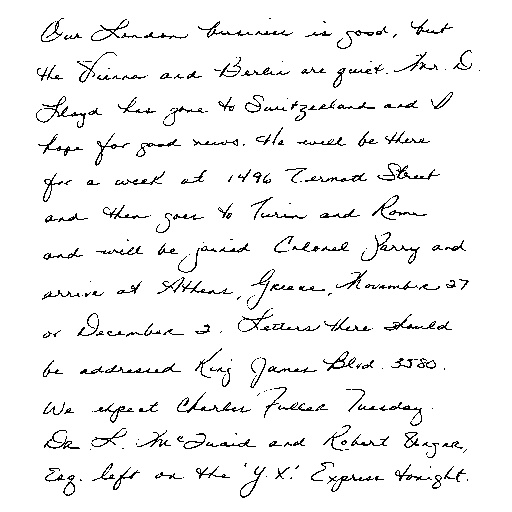 Our London business is good, but
the Vienna and Berlin are quiet. Mr. D.
Lloyd has gone to Switzerland and I
hope for good news. He will be there
for a week at 1496 Zermott Street
and then goes to Turin and Rome
and will be joined Colonel Parry and
arrive at Athens, Greece, November 27
or December 2. Letters there should
be addressed King James Blvd. 3580.
We expect Charles Fuller Tuesday.
Dr. L. McQuaid and Robert Unger,
Esq. left on the 'Y.X.' Express tonight.